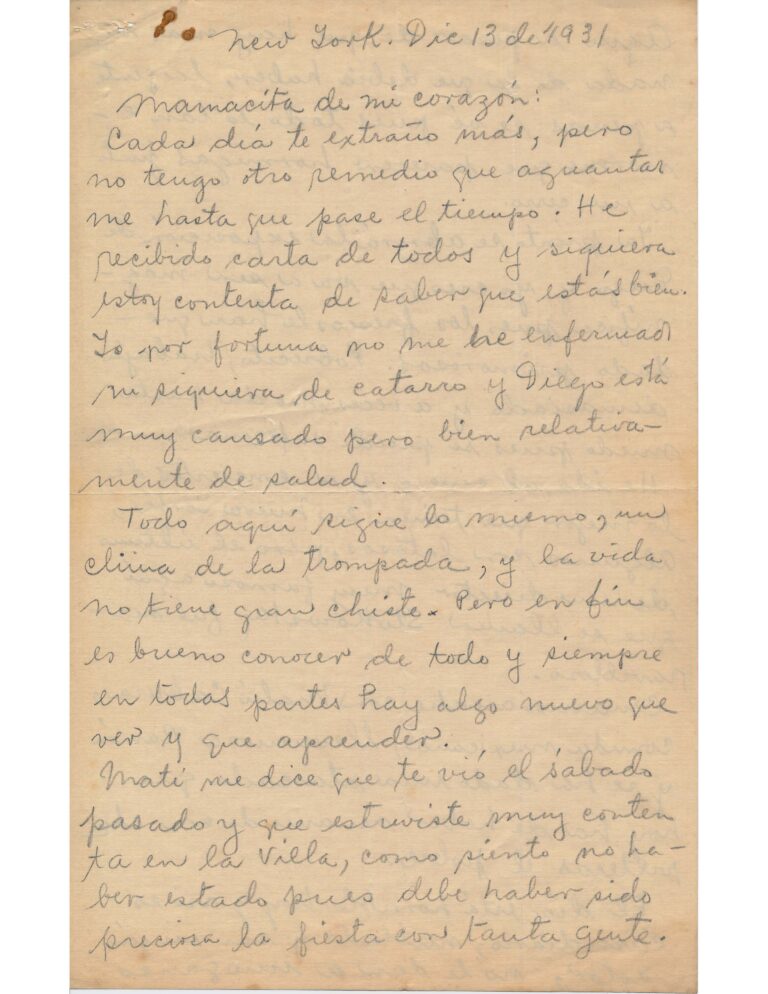 New York. Dic 13 de 1931
Mamacita de mi corazón:
Cada día te extraño más, pero
no tengo otro remedio que aguantar
me hasta que pase el tiempo. He
recibido carta de todos y siquiera
estoy contenta de saber que estás bien.
Yo por fortuna no me he enfermado
ni siquiera de catarro y Diego está
muy cansado pero bien relativa-
mente de salud.
Todo aquí sigue lo mismo, un
clima de la trompada, y la vida
no tiene gran chiste. Pero en fin
es bueno conocer de todo y siempre
en todas partes hay algo nuevo que
ver y que aprender.
Mati me dice que te vió el sábado
pasado y que estuviste muy conten
ta en la Villa, como siento no ha-
ber estado pues debe haber sido
preciosa la fiesta con tanta gente.